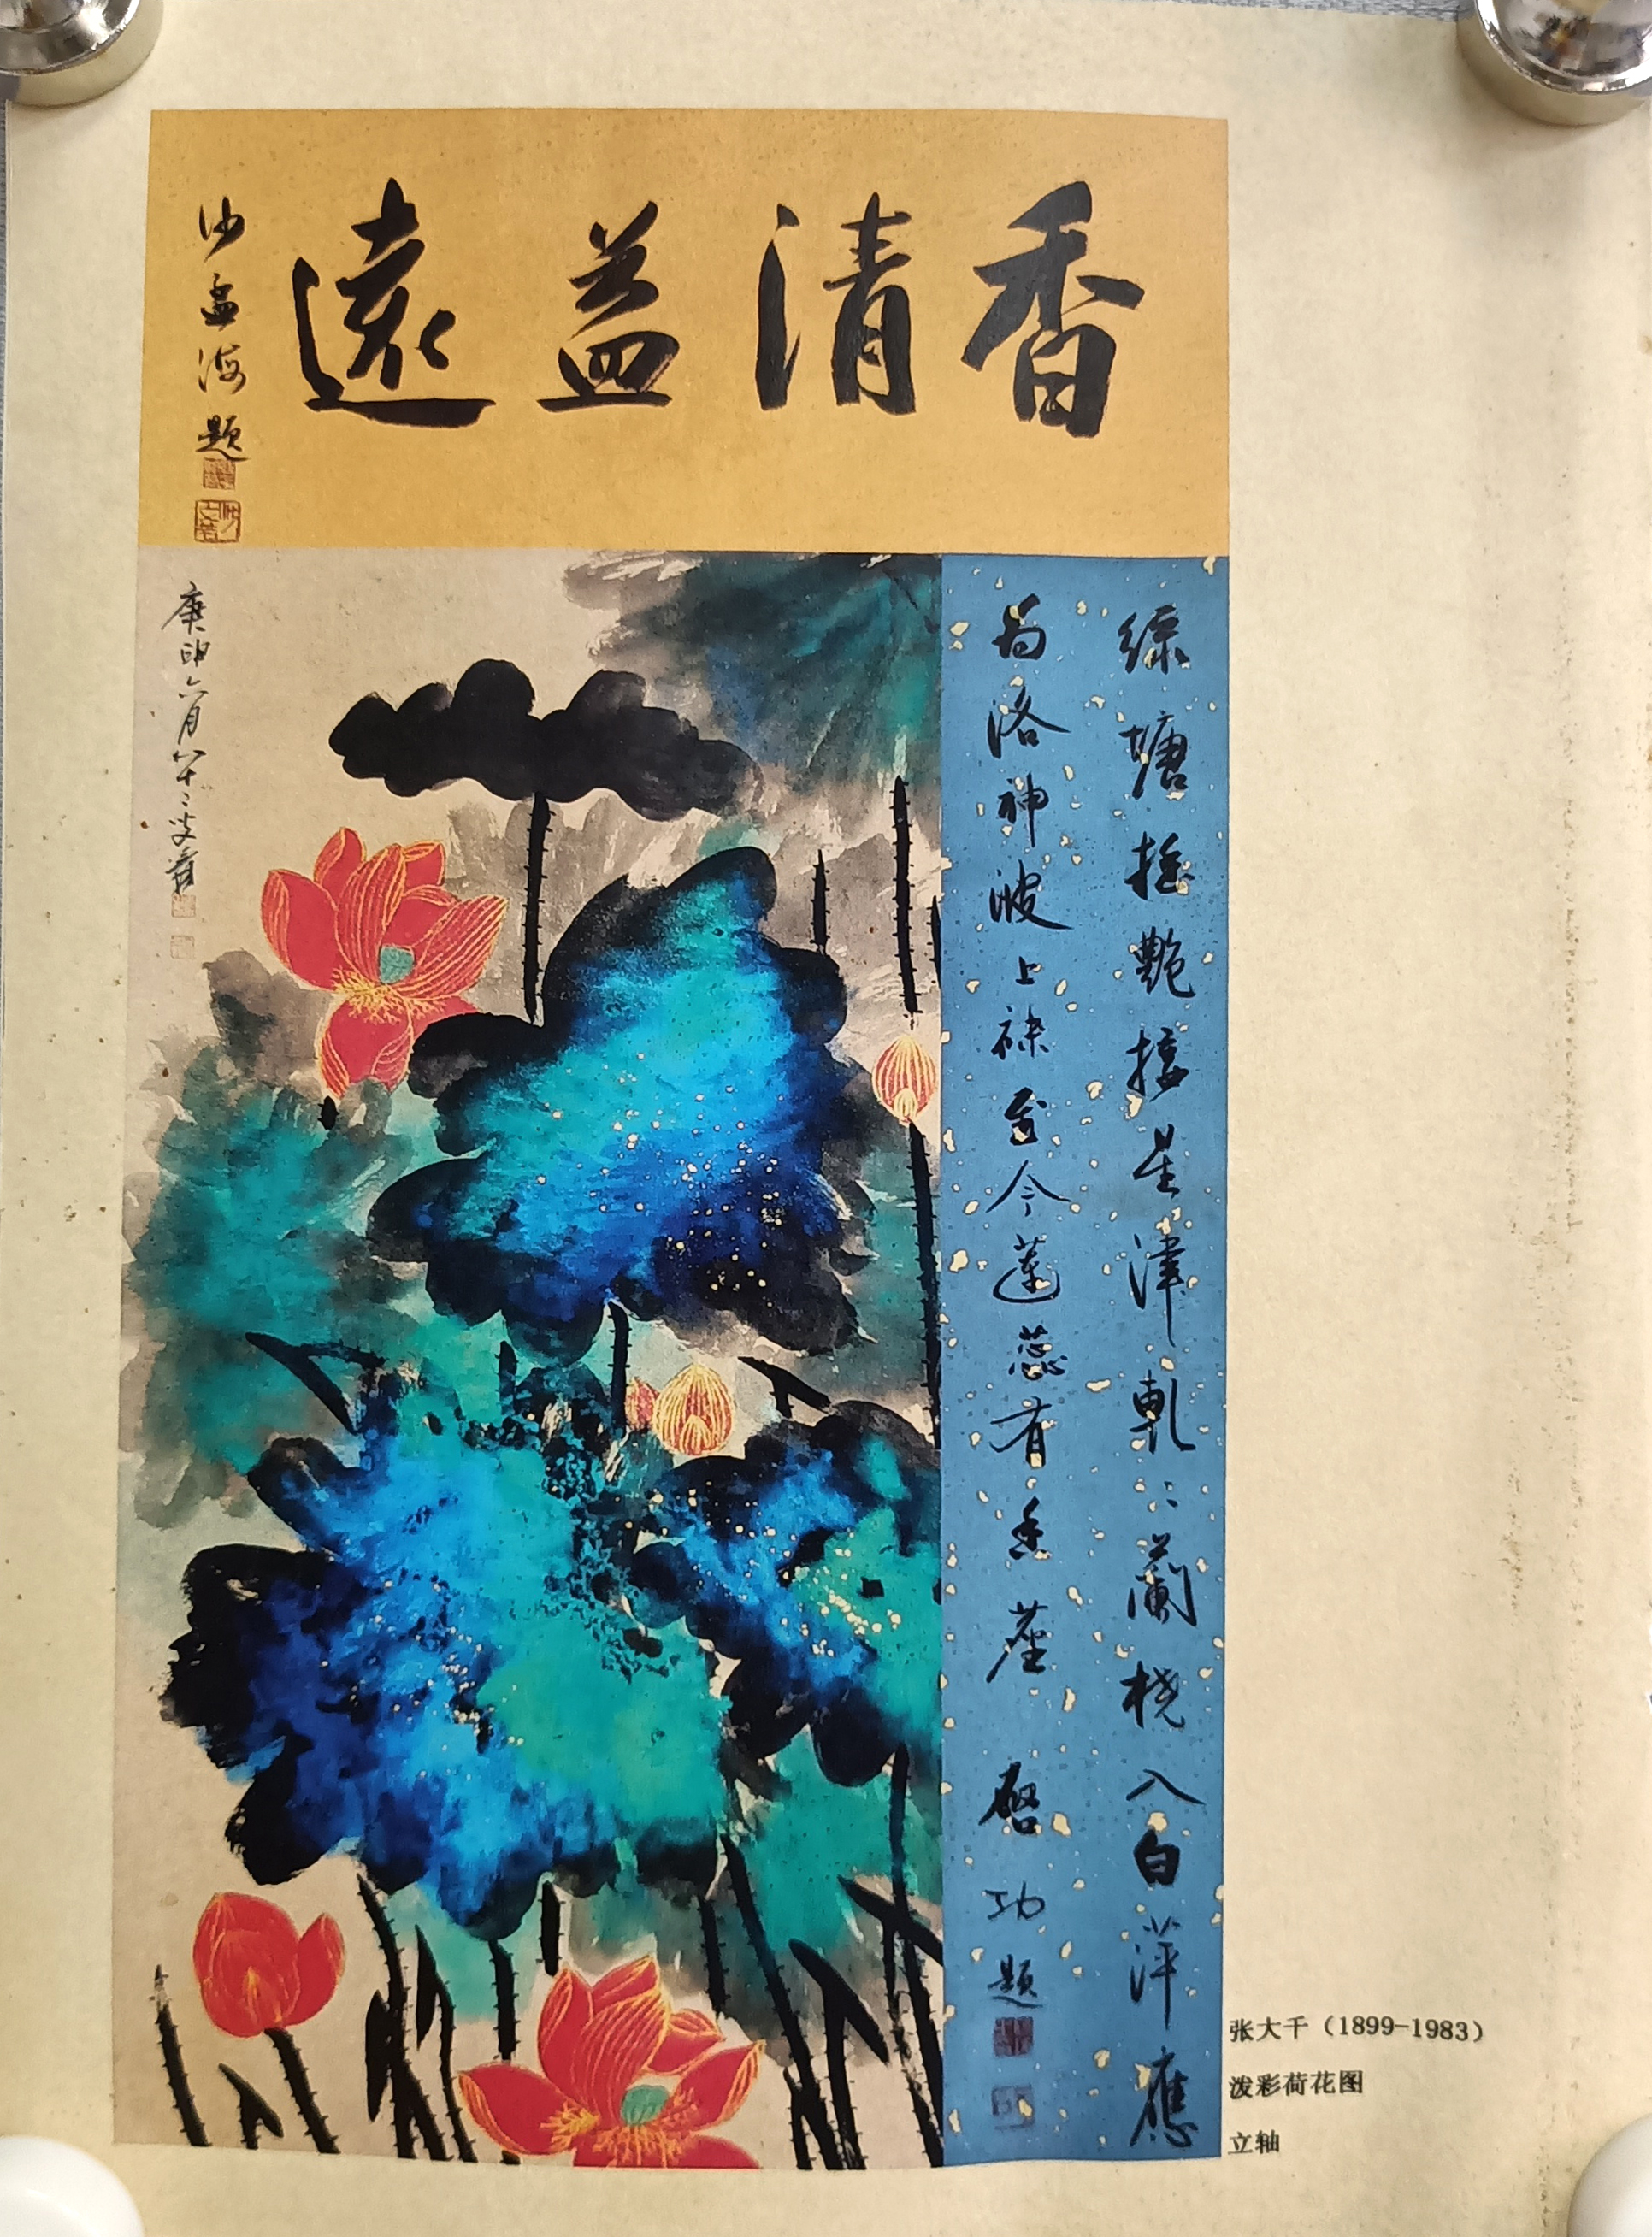 香清益遠
沙孟海題
綠塘搖艷接星津軋〻蘭橈入白萍應
為洛神波上襪至今蓮蕊有香塵 啓功題
庚申六月八十二叟爰
张大千（1899-1983）
泼彩荷花图
立轴